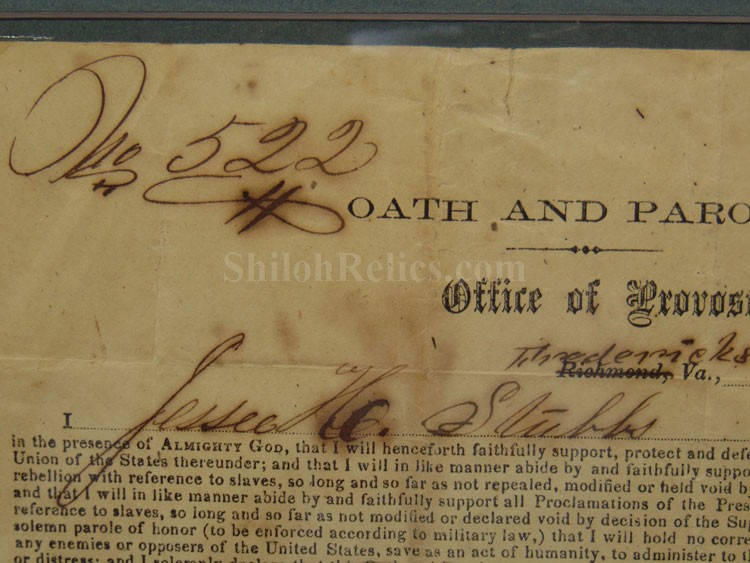 No 522
OATH AND PARO
ShilohRelics.com
Office of Provos
Fredericks
Richmond, Va.,
I Jesse H. Stubbs
in the presence of ALMIGHTY GOD, that I will henceforth faithfully support, protect and defe
Union of the States thereunder; and that I will in like manner abide by and faithfully suppo
rebellion with reference to slaves, so long and so far as not repealed, modified or held void by
and that I will in like manner abide by and faithfully support all Proclamations of the Pres
reference to slaves, so long and so far as not modified or declared void by decision of the Su
solemn parole of honor (to be enforced according to military law,) that I will hold no corre
any enemies or opposers of the United States, save as an act of humanity, to administer to th
or distress; and I solemnly declare that this